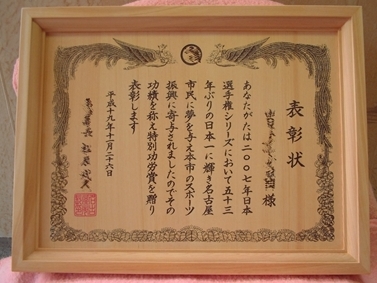 表彰状
様
あなたがたは二〇〇七年日本
選手権シリーズにおいて五十三
年ぶりの日本一に輝き名古屋
市民に夢を与え本市のスポーツ
振興に寄与されましたのでその
功績を称え特別功労賞を贈り
表彰します
平成十九年十一月二十六日